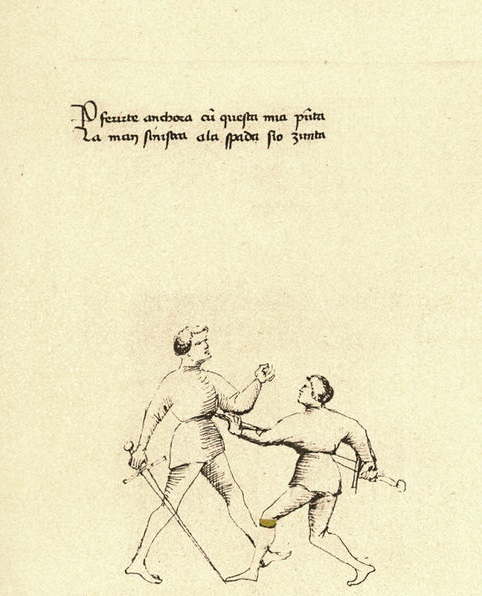 P ferirte anchora cū questa mia pūta
La man sinistra ala spada ſio zunta